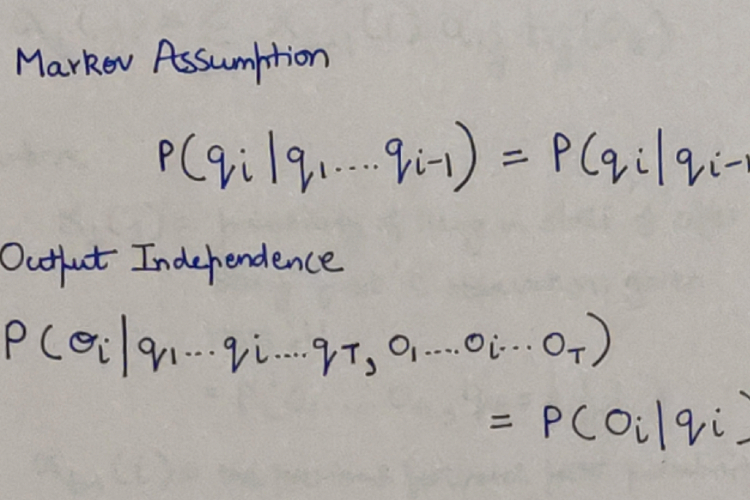 Markov Assumption
P(qi | q1.... qi-1) = P(qi | qi-1
Output Independence
P(oi | q1... qi.... qT, o1....oi... oT)
= P(oi | qi)